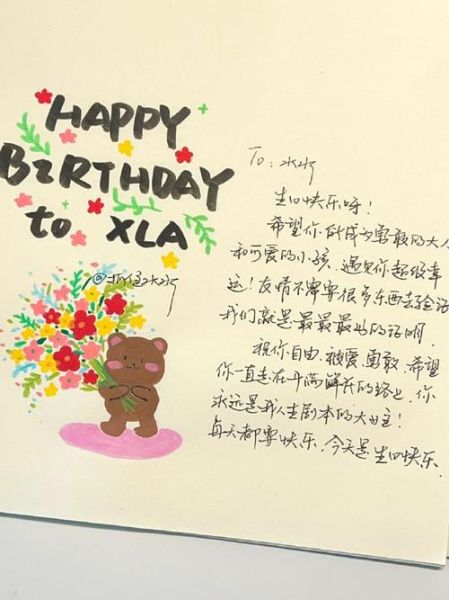 HAPPY
BIRTHDAY
to XLA
To:
生日快乐呀！
希望你能成为勇敢的大人
和可爱的小孩，遇见你超级幸
运！友情不需要很多东西去验证
我们就是最最最好的证明．
祝你自由．被爱．勇敢．希望
你一直走在开满鲜花的路上．你
永远是我人生剧本的大女主！
每天都要快乐．今天是生日快乐．